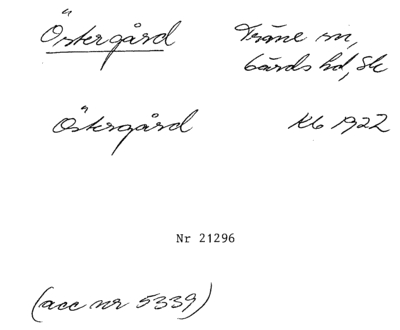 Östergård Träne sn,
Gärds hd, Sk
Östergård Kb 1922
Nr 21296
(acc nr 5339)